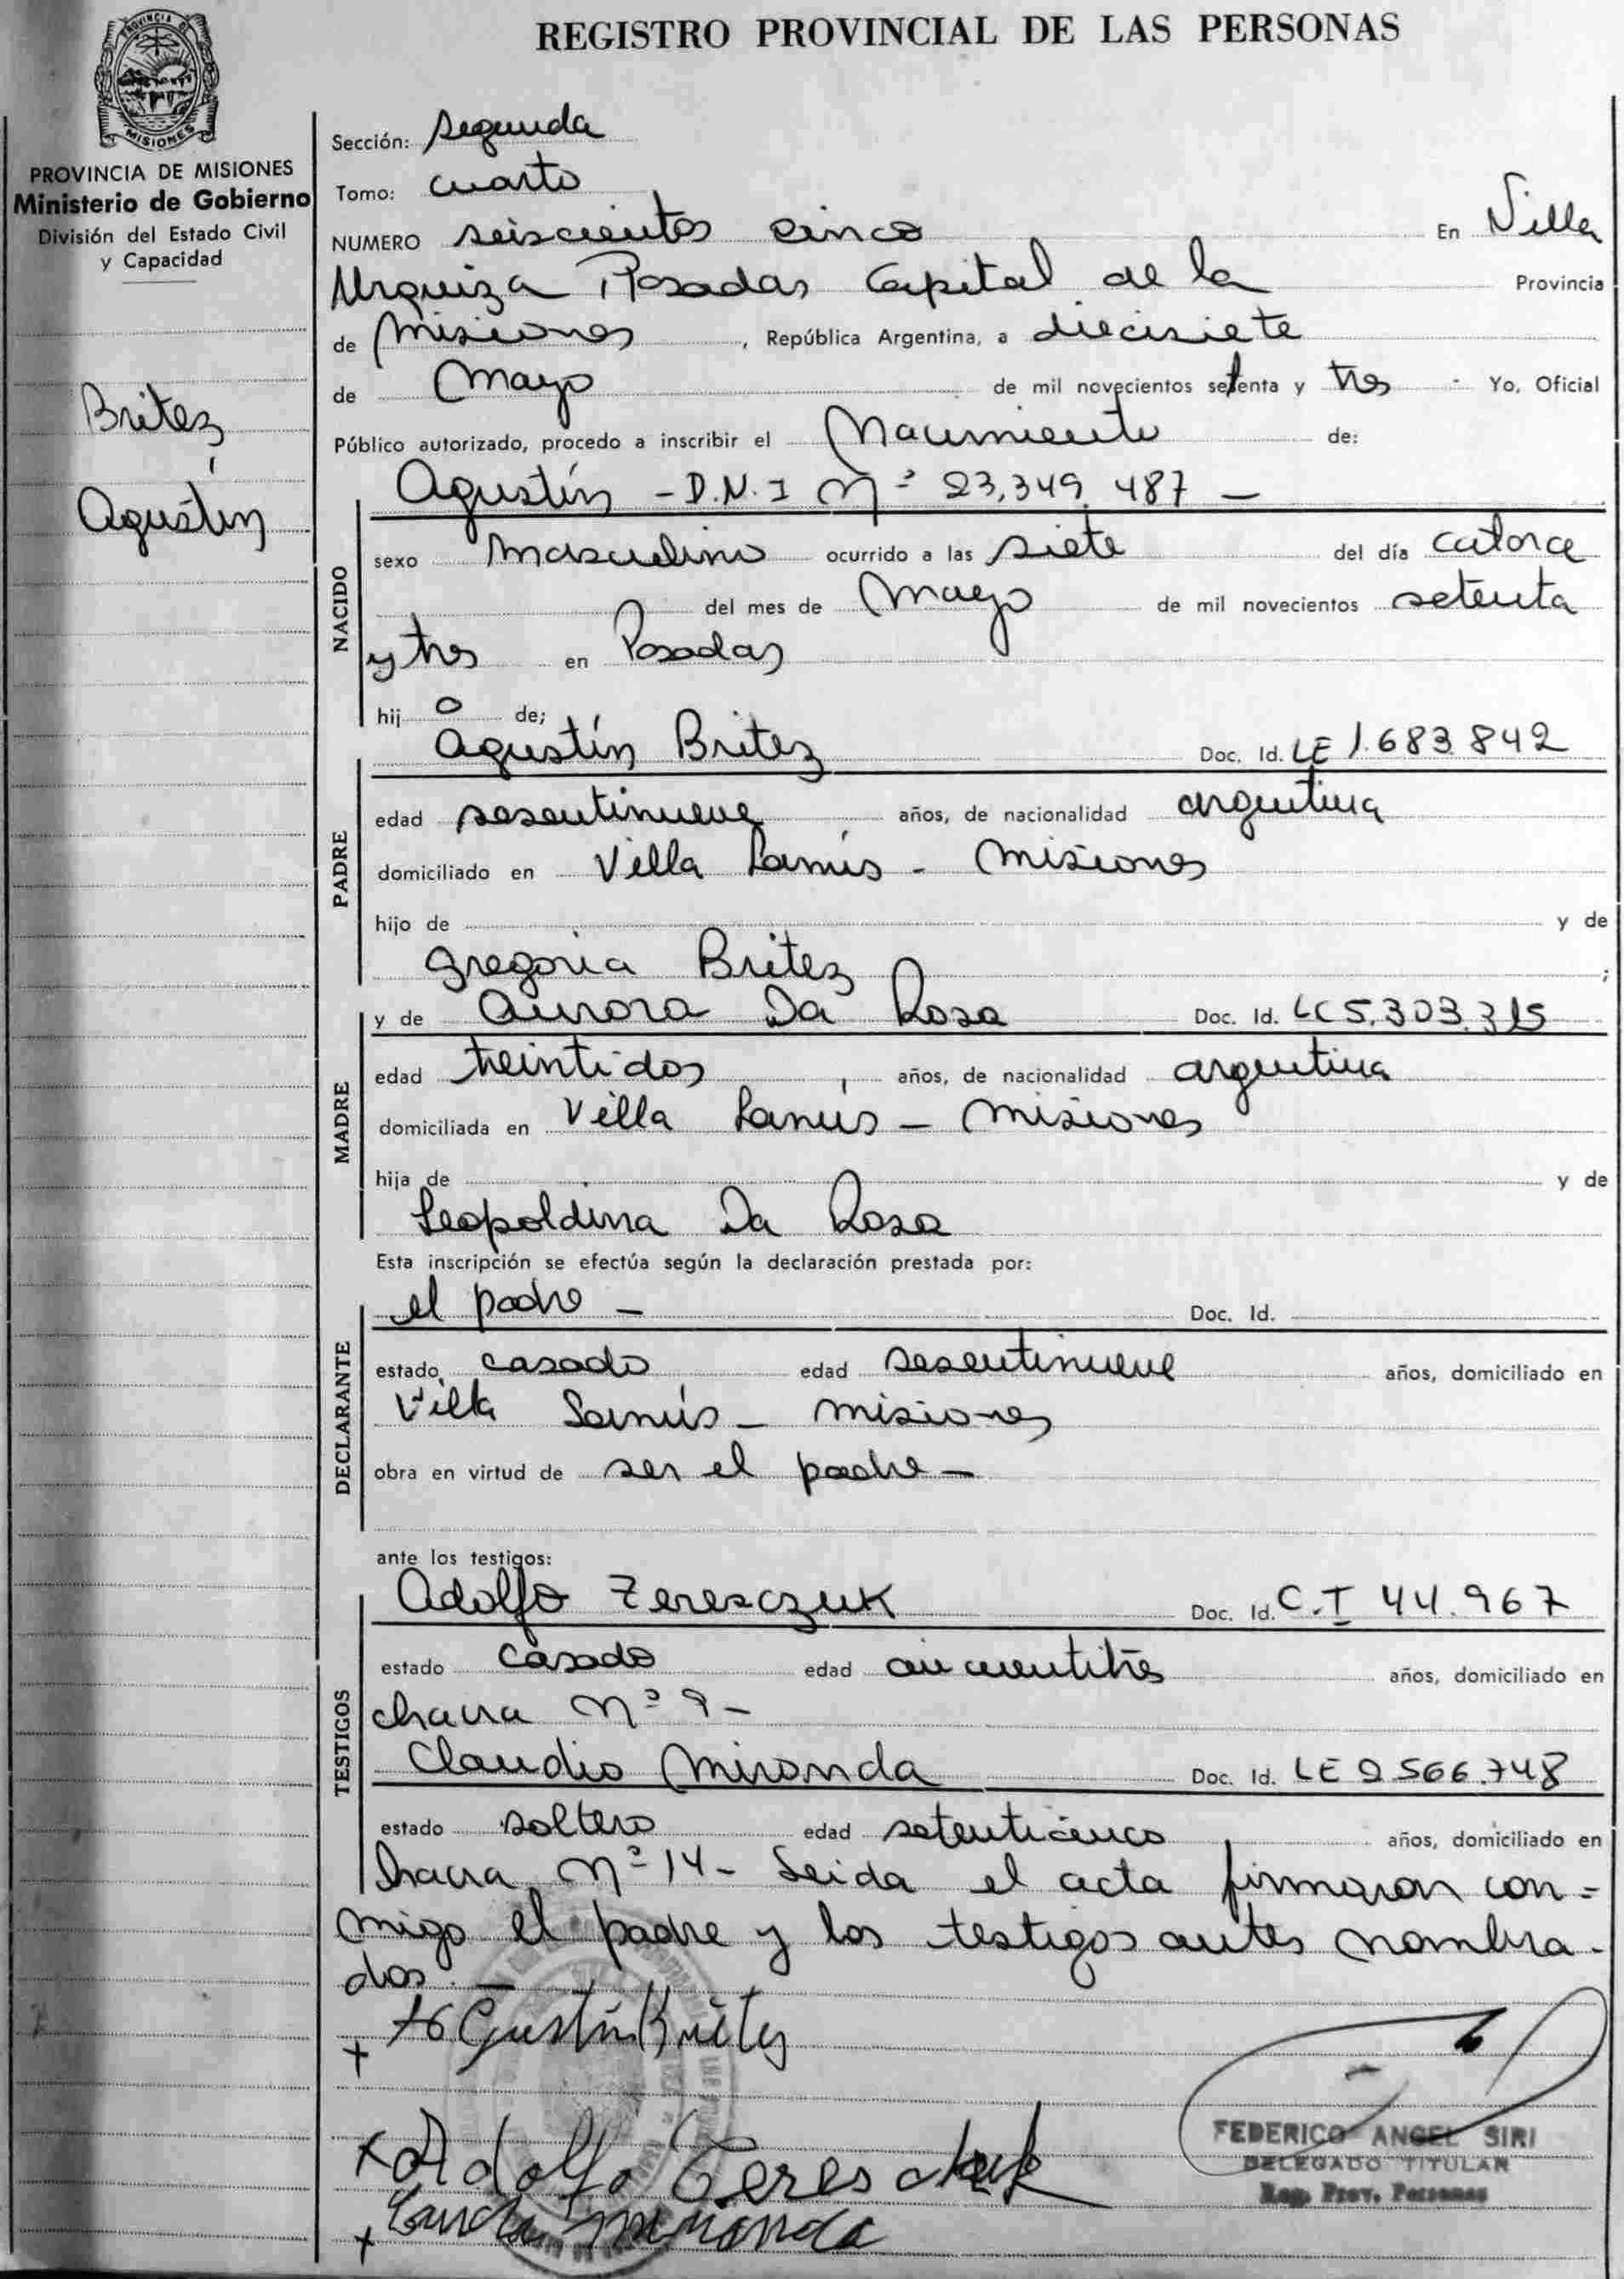 REGISTRO PROVINCIAL DE LAS PERSONAS
PROVINCIA DE
MISIONES
PROVINCIA DE MISIONES
Ministerio de Gobierno
División del Estado Civil
y Capacidad
Britez
Agustín
Sección: Segunda
Tomo: Cuarto
NUMERO seiscientos cinco En Villa
Urquiza Posadas Capital de la Provincia
de Misiones, República Argentina, a diecisiete
de Mayo de mil novecientos setenta y tres - Yo, Oficial
Público autorizado, procedo a inscribir el Nacimiento de:
Agustín - D.N.I Nº 23,349,487 -
NACIDO
sexo Masculino ocurrido a las siete del día catorce
del mes de Mayo de mil novecientos setenta
y tres en Posadas
hij o de;
Agustín Britez Doc. Id. LE 1.683.842
PADRE
edad sesentinueve años, de nacionalidad argentina
domiciliado en Villa Lanús - Misiones
hijo de y de
Gregoria Britez ;
y de Aurora Da Rosa Doc. Id. LC 5.303.315
MADRE
edad treintidos, años, de nacionalidad argentina
domiciliada en Villa Lanús - Misiones
hija de y de
Leopoldina Da Rosa
Esta inscripción se efectúa según la declaración prestada por:
el padre - Doc. Id.
DECLARANTE
estado casado edad sesentinueve años, domiciliado en
Villa Lanús - Misiones
obra en virtud de ser el padre -
ante los testigos:
Adolfo Zeresczuk Doc. Id. C.I 44.967
TESTIGOS
estado casado edad cincuentitrés años, domiciliado en
chacra Nº 9 -
Claudio Miranda Doc. Id. LE 2566.748
estado soltero edad setenticinco años, domiciliado en
chacra Nº 14 - Leida el acta firmaron con=
migo el padre y los testigos antes nombra-
dos. -
+ AGustín Britez
x Adolfo Tereschuk
+ Miranda
FEDERICO ANGEL SIRI
DELEGADO TITULAR
Reg. Prov. Personas